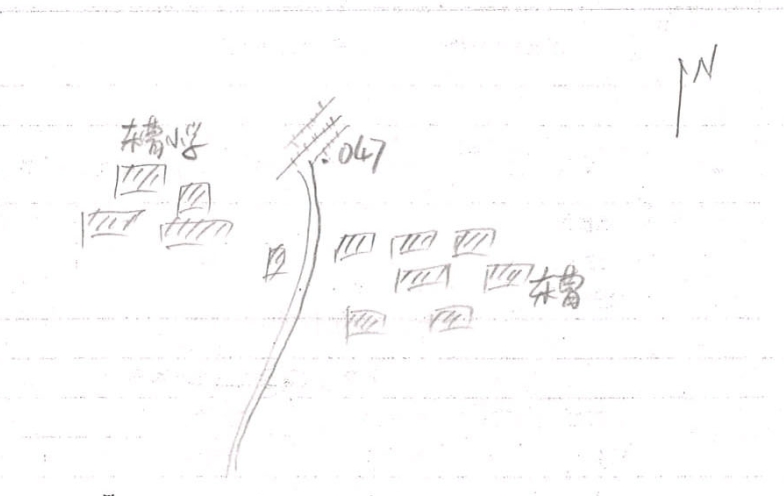 N
东曹小学
047
东曹